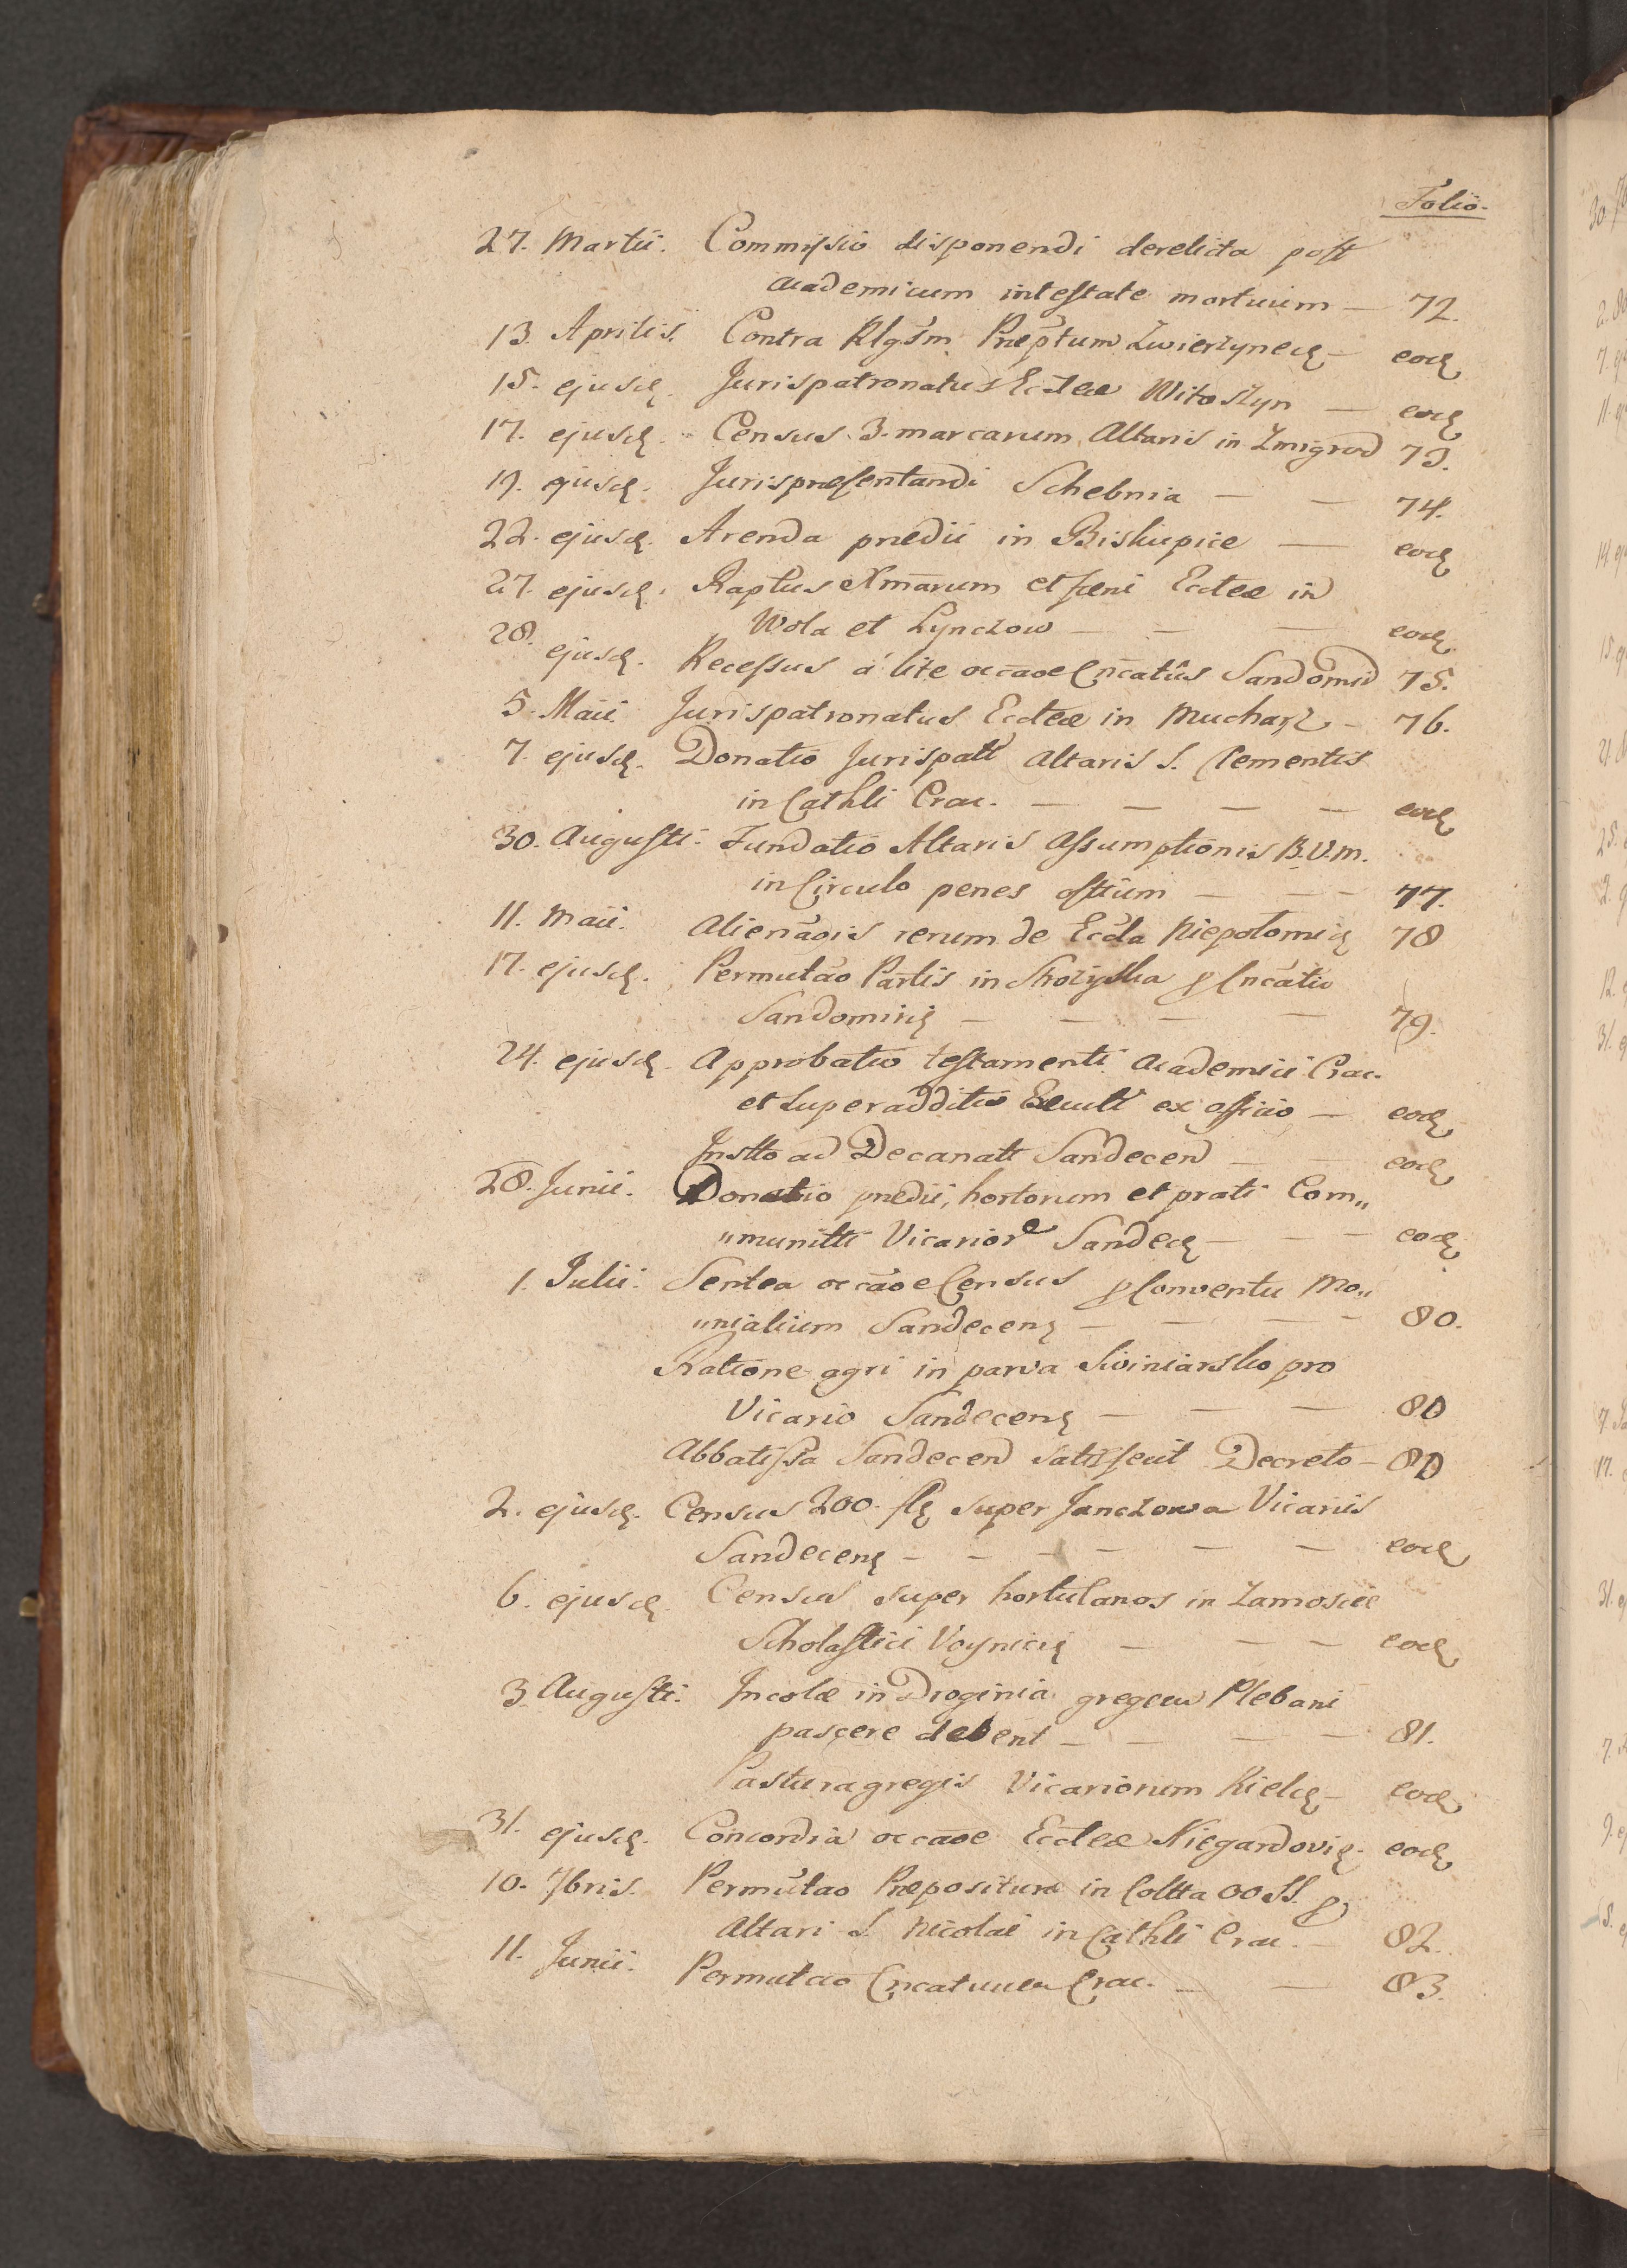 Folio.
27. Martii. Commissio disponendi derelicta post
academicum intestate mortuum — 72.
13. Aprilis. Contra Rlgsm Pneptum Zwierzynecꝫ — eodꝫ
15. ejusdꝫ. Jurispatronatus Ecclae Witoszyn — eodꝫ
17. ejusdꝫ. Census 3. marcarum Altaris in Zmigrod 73.
19. ejusdꝫ. Jurispraesentandi Schebnia — — 74.
22. ejusdꝫ. Arenda praedii in Biskupice — eodꝫ
27. ejusdꝫ. Raptus Xmarum et faeni Ecclae in
Wola et Lynczow — — — eodꝫ
28. ejusdꝫ. Recessus á lite occãoe Cncatûs Sandomid 75.
5. Maii Jurispatronatus Ecclae in Mucharz — 76.
7. ejusdꝫ. Donatio Jurispatt Altaris S. Clementis
in Cathli Crac. — — — — eodꝫ
30. Augusti. Fundatio Altaris Assumptionis B.V.M.
in Circulo penes ostium — — — 77.
11. Maii. Alienãois rerum de Eccla Niepolomicꝫ 78
17. ejusdꝫ. Permutão Partis in Skozyska ꝓ Cncãtu
Sandomiriꝫ — — — — 79.
24. ejusdꝫ. Approbatio testamenti Academici Crac.
et superadditio Exeutt ex officio — eodꝫ
Instto ad Decanatt Sandecen — — eodꝫ
28. Junii. Donatio praedii, hortorum et prati Com„
„munitti Vicarior Sandecꝫ — — — eodꝫ
1. Julii. Sentea occãoe Census ꝓ Conventu Mo„
„nialium Sandecenꝫ — — — — 80.
Ratione agri in parva Swiniarsko pro
Vicario Sandecenꝫ — — — 80
Abbatissa Sandecen satisfecit Decreto — 80
2. ejusdꝫ. Census 200. flꝫ super Janczowa Vicariis
Sandecenꝫ — — — — — — eodꝫ
6. ejusdꝫ. Census super hortulanos in Zamoscie
Scholastici Voyniciꝫ — — — eodꝫ
3 Augusti. Incolae in Droginia gregem Plebani
pascere debent — — — — 81.
Pastura gregis Vicariorum Kielcꝫ — eodꝫ
31. ejusdꝫ. Concordia occãoe Ecclae Niegardoviꝫ. eodꝫ
10. 7bris. Permutao Praepositurae in Coltta OO SS. ꝓ
Altari S. Nicolai in Cathli Crac. — 82.
11. Junii. Permutao Cncatuum Crac. — — 83.